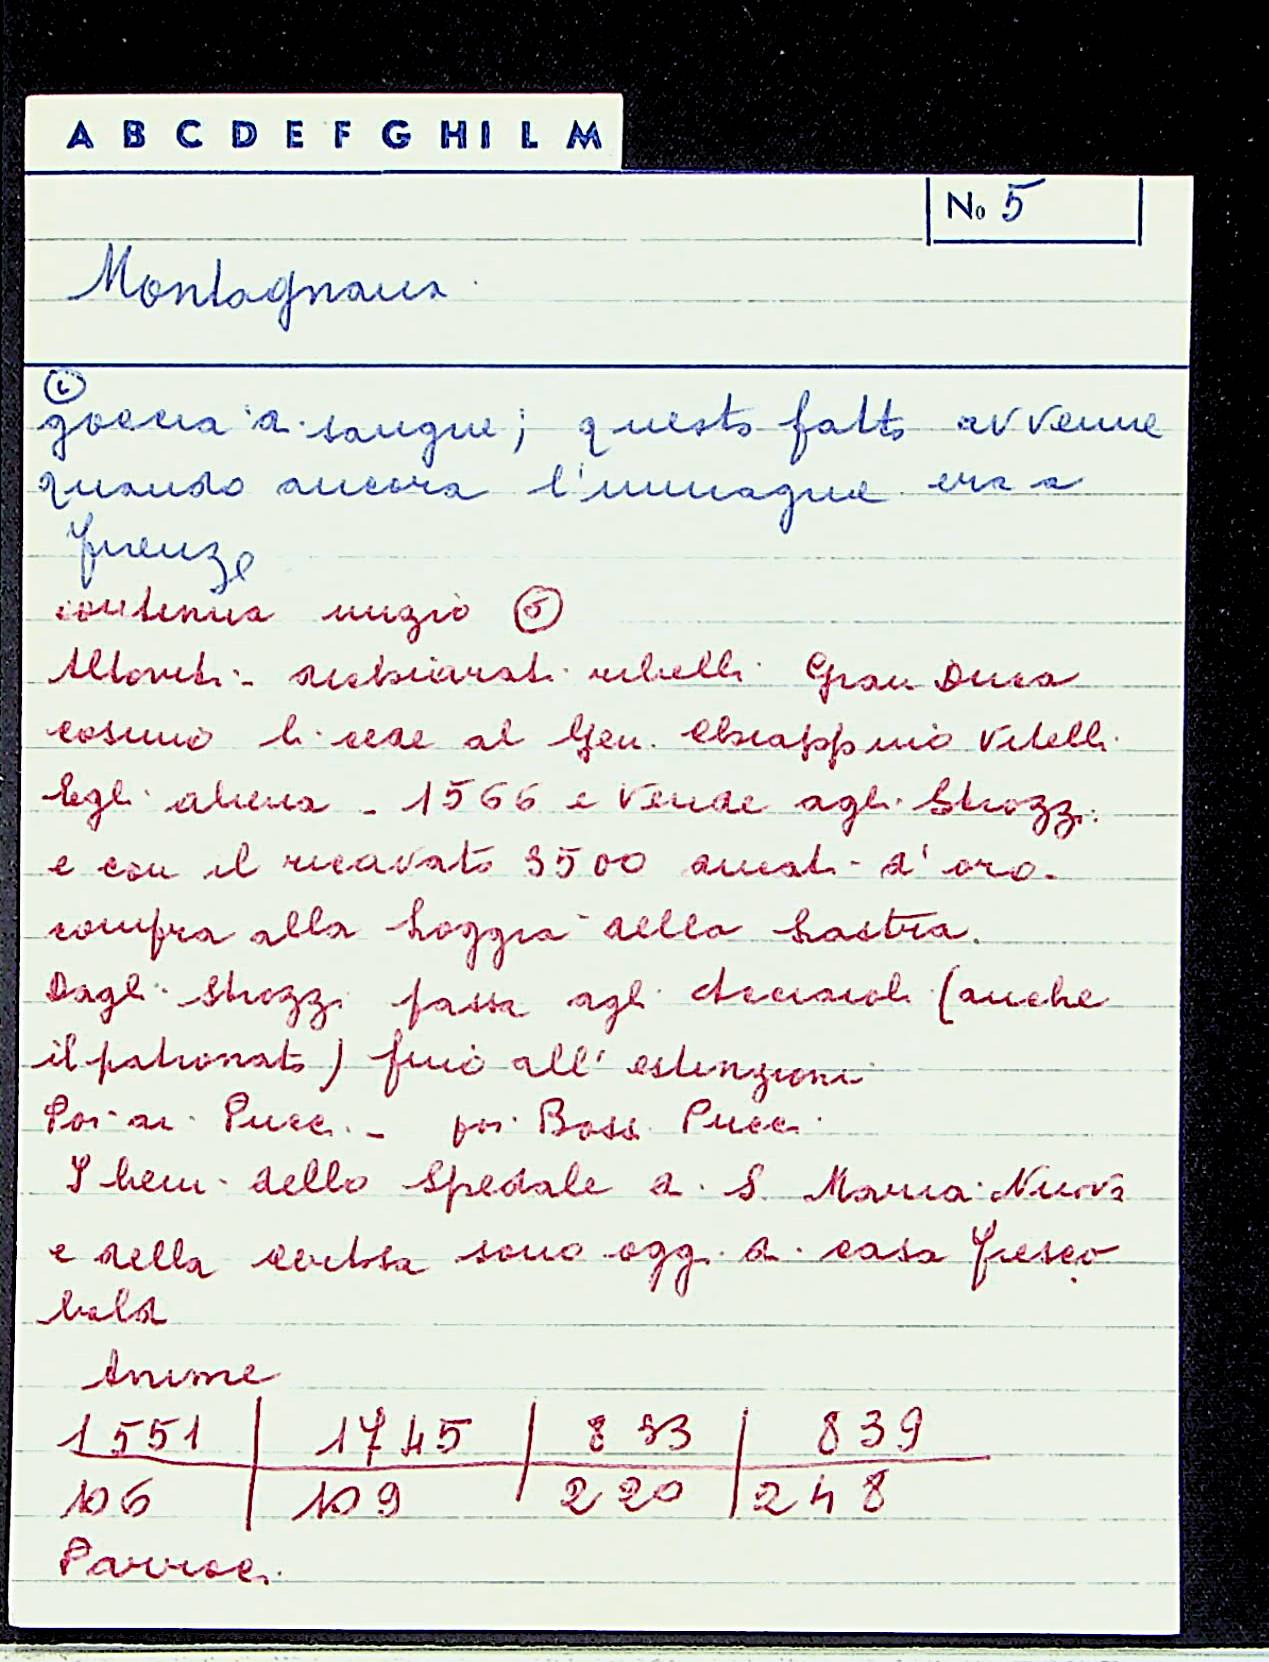 A B C D E F G H I L M
No 5
Montagnana
6
goccia di sangue; questo fatto avvenne
quando ancora l'immagine era a
Firenze
continua inizio 5
Altoviti - dichiarati ribelli Gran Duca
Cosimo li cede al Gen. Chiappino Vitelli
Egli aliena - 1566 e vende agli Strozzi
e con il ricavato 9500 ducati d'oro
compra alla Loggia della Lastra.
Dagli Strozzi passa agli Acciaioli (anche
il patronato) fino all'estinzione
Poi ai Pucci - poi Bossi Pucci
I beni dello Spedale di S. Maria Nuova
e della Certosa sono oggi di casa Fresco
baldi
Anime
1551 | 1745 | 833 | 839
106 | 109 | 220 | 248
Parroci